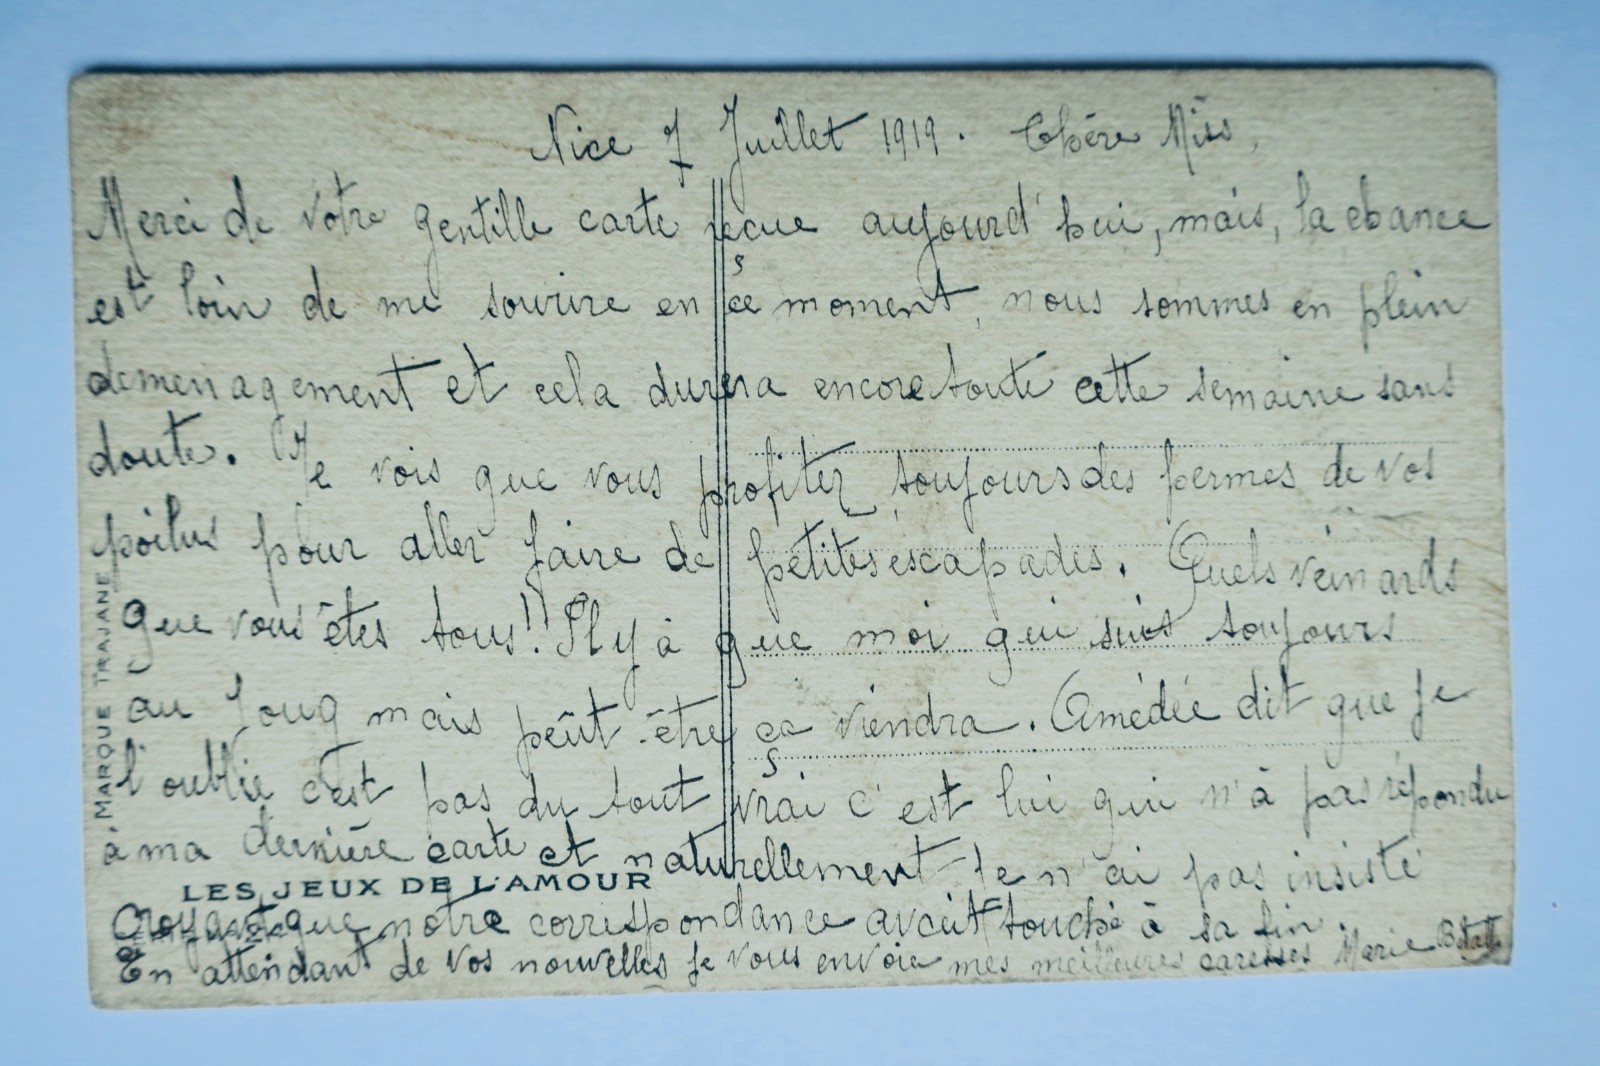 Nice 7 Juillet 1919. Chère Miss,
Merci de votre gentille carte reçue aujourd'hui, mais, la chance
est loin de me sourire en ce moment, nous sommes en plein
demenagement et cela durera encore toute cette semaine sans
doute. Je vois que vous profitez toujours des permes de vos
poilus pour aller faire de petites escapades. Quels veinards
que vous êtes tous!! Il y à que moi qui suis toujours
au Joug mais peût-être ça viendra. Amédée dit que je
l'oublie c'est pas du tout vrai c'est lui qui n'à pas répondu
à ma dernière carte et naturellement je n'ai pas insisté
LES JEUX DE L'AMOUR
Croyant que notre correspondance avait touché à sa fin.
En attendant de vos nouvelles je vous envoie mes meilleures caresses Marie
MARQUE TRAJANE